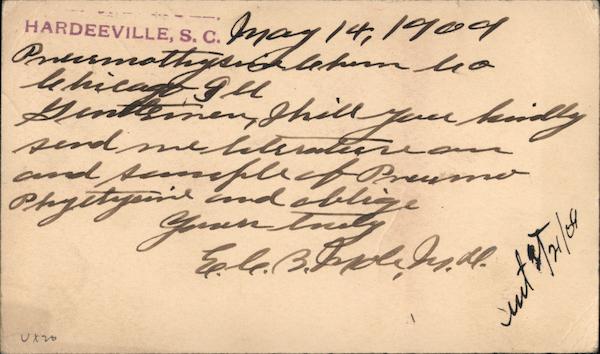 HARDEEVILLE, S. C. May 14, 1909
Chem Co
Chicago Ill
Gentlemen, Will you kindly
send me literature on
and sample of Pneumo
Phytysine and oblige
Yours truly
E. C. B. M.D.
5/21/09
UX20